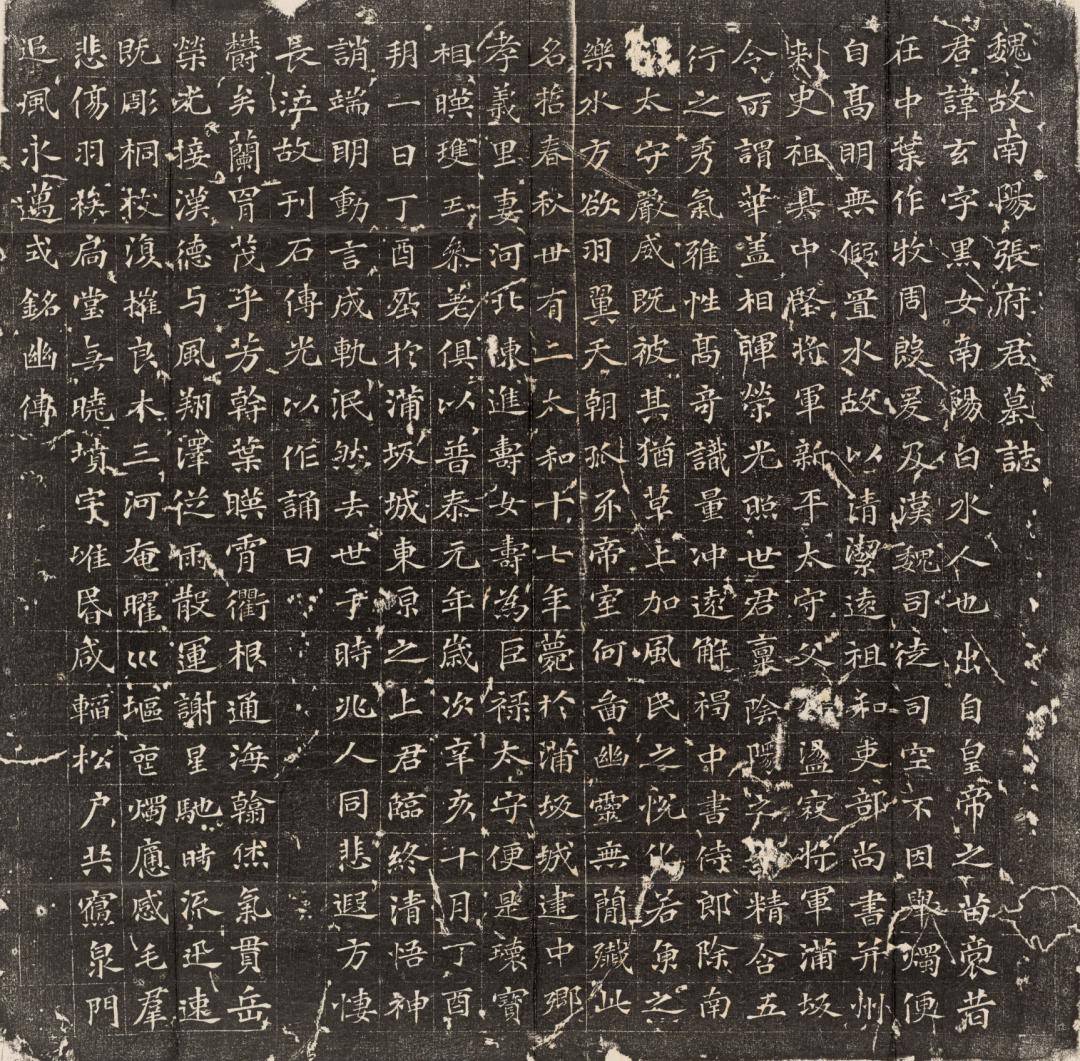 魏故南陽張府君墓誌
君諱玄字黑女南陽白水人也出自皇帝之苗裔昔
在中葉作牧周殷爰及漢魏司徒司空不因舉燭便
自高明無假置水故以清潔遠祖和吏部尚書并州
刺史祖具中堅將軍新平太守父盪寇將軍蒲坂
令所謂華蓋相暉榮光照世君稟陰陽之精含五
行之秀氣雅性高奇識量沖遠解褐中書侍郎除南
太守嚴威既被其猶草上加風民之悅化若魚之
樂水方欲羽翼天朝抓牙帝室何啚幽靈無簡殲此
名哲春秋卅有二太和十七年薨於蒲坂城建中鄉
孝義里妻河北陳進壽女壽為巨祿太守便是瓌寶
相暎瓊玉參差俱以普泰元年歲次辛亥十月丁酉
朔一日丁酉塟於蒲坂城東原之上君臨終清悟神
誚端明動言成軌泯然去世于時兆人同悲遐方悽
長泣故刊石傳光以作誦曰
鬱矣蘭冑茂乎芳幹葉暎霄衢根通海翰倐氣貫岳
榮光接漢德与風翔澤從雨散運謝星馳時流迅速
既彫桐枝復摧良木三河奄曜巛堰喪燭痝感毛群
悲傷羽族扃堂無曉墳宇唯昏咸轜松户共寢泉門
追風永邁式銘幽傳